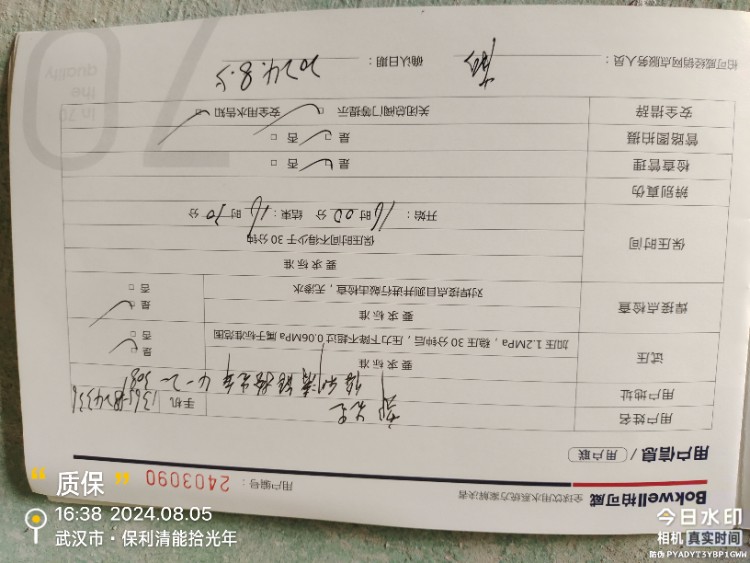 Bokwell柏可威 全球饮用水系统方案解决者
用户编号：2403090
用户信息 / 用户联
用户姓名 先生 手机
用户地址 保利清能拾光年 4-2-303
试压 要求标准
加压1.2MPa，稳压30分钟后，压力下降不超过0.06MPa属于标准范围
是
否
焊接点检查 要求标准
对焊接点目测并进行敲击检查，无渗水
是
否
保压时间 要求标准
保压时间不得少于30分钟
开始：16时00分 结束：16时30分
辨别真伪
检查管理 是 否
管路图拍摄 是 否
安全措辞 关闭总阀门等提示 安全用水告知
柏可威经销网点服务人员： 确认日期：2024.8.5
In 70
the
quality
70
质保
16:38 2024.08.05
武汉市·保利清能拾光年
今日水印
相机 真实时间
防伪 PYADYT3YBP1GWW